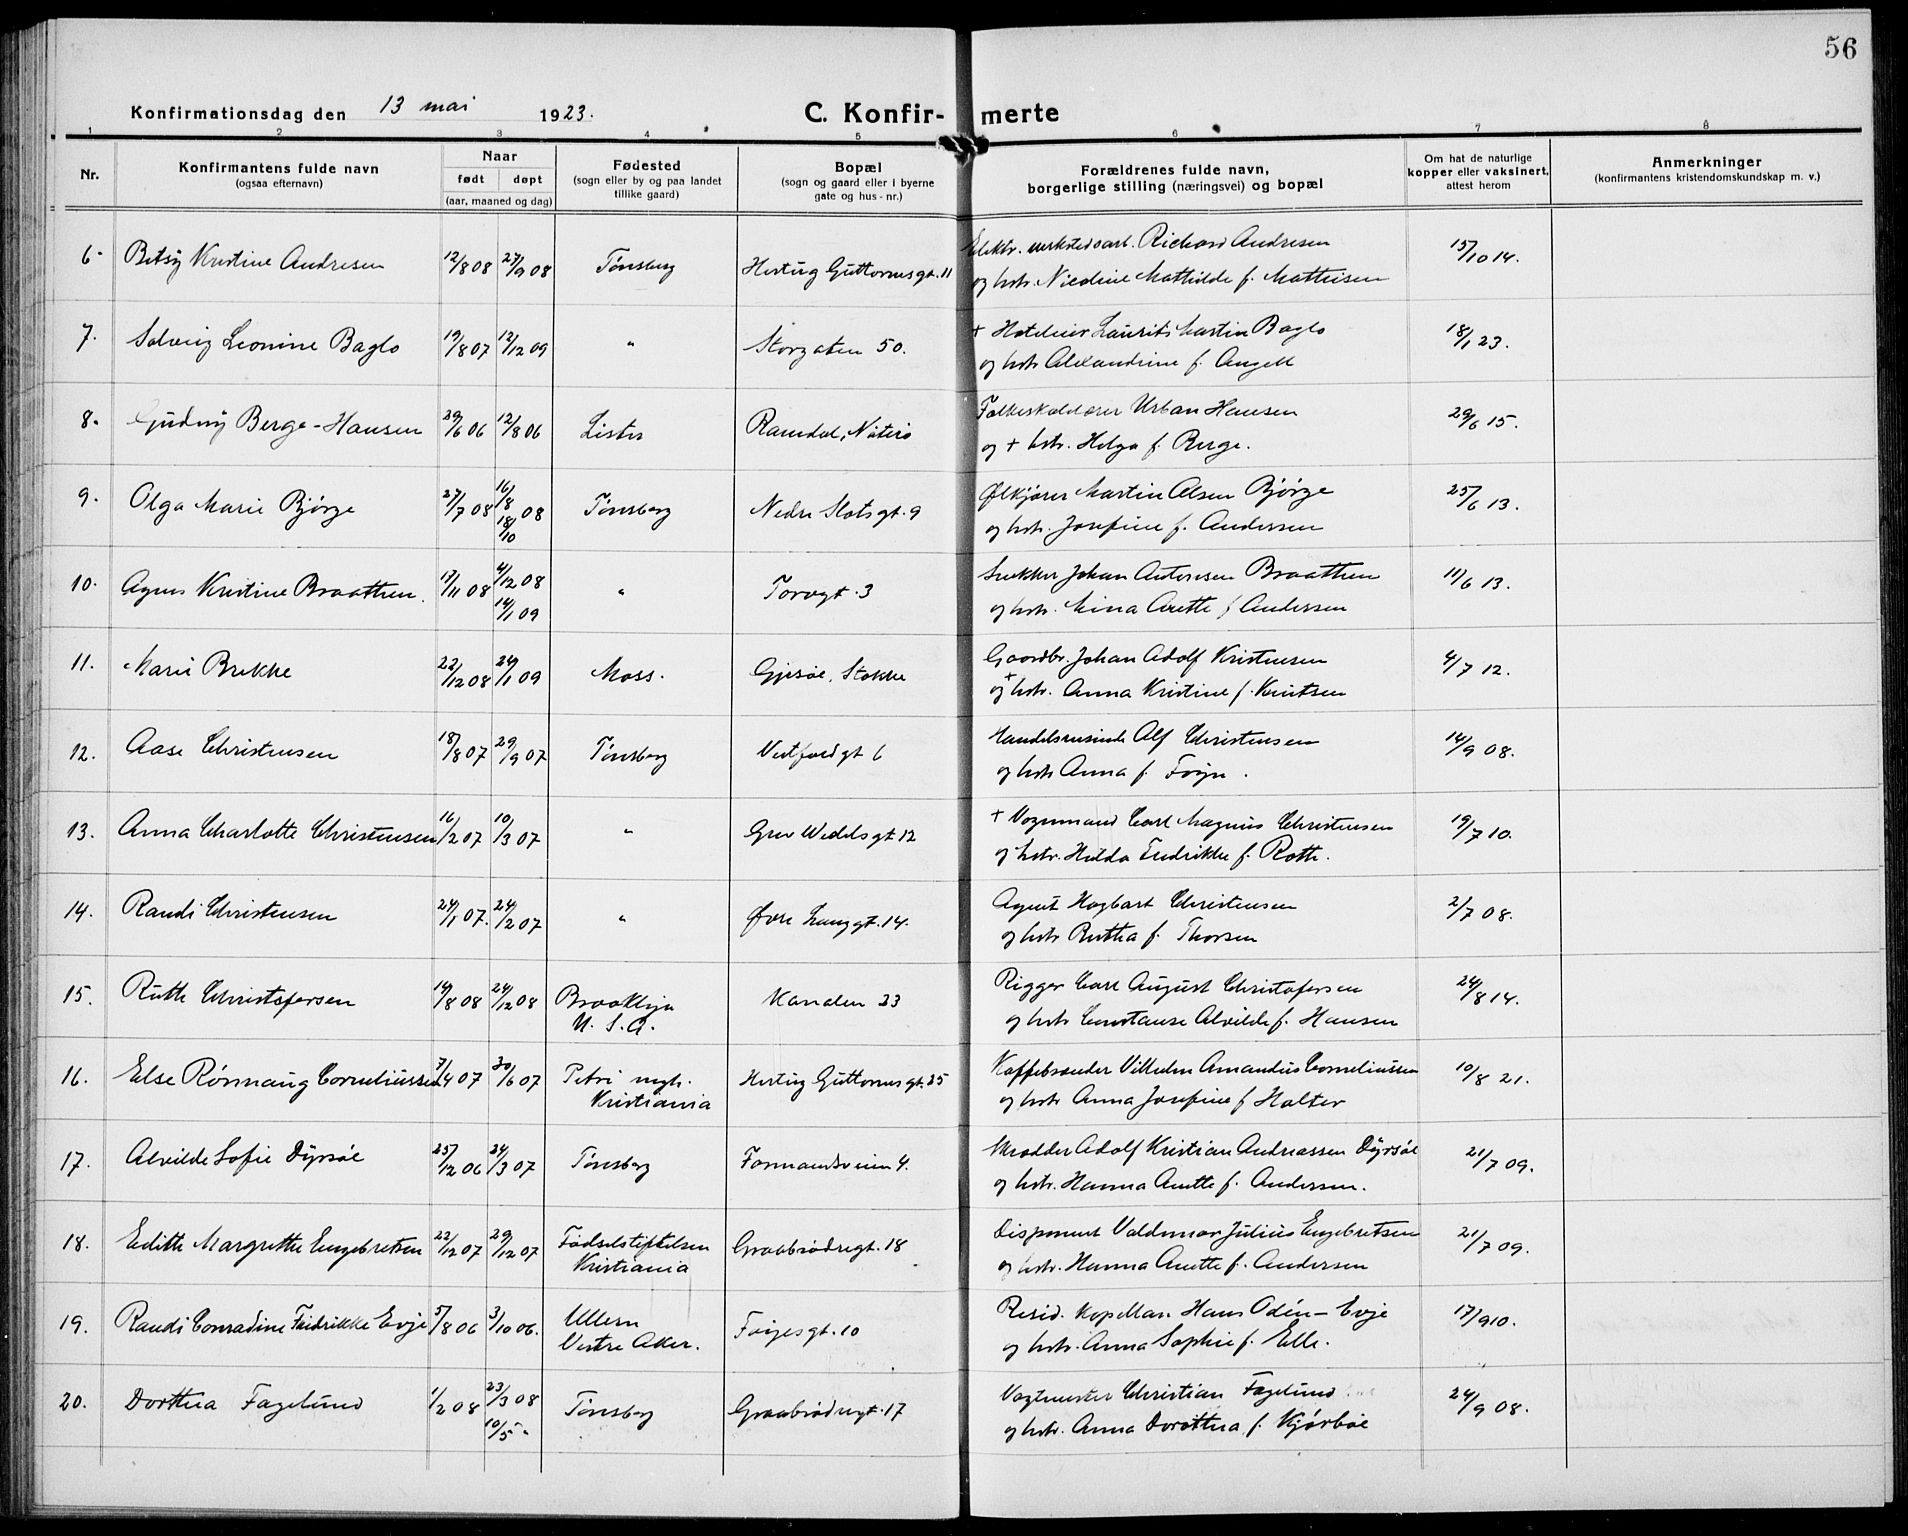 56
Konfirmationsdag den 13 mai 1923.
C. Konfir- merte
1 2 3 4 5 6 7 8
Nr.
Konfirmantens fulde navn
(ogsaa efternavn)
Naar
født døpt
(aar, maaned og dag)
Fødested
(sogn eller by og paa landet
tillike gaard)
Bopæl
(sogn og gaard eller i byerne
gate og hus-nr.)
Forældrenes fulde navn,
borgerlige stilling (næringsvei) og bopæl
Om hat de naturlige
kopper eller vaksinert,
attest herom
Anmerkninger
(konfirmantens kristendomskundskap m. v.)
6. Betsy Kristine Andresen 12/8 08 27/9 08 Tønsberg Hertug Guttormsgt. 11 Elektr. verkstedsarb. Richard Andresen 15/10 14.
og hstr. Nicoline Mathilde f. Mathisen
7. Solveig Leonine Baglo 19/8 07 12/12 09 " Storgaten 50. + Hoteleier Laurits Martin Baglo 18/1 23.
og hstr. Alexandrine f. Angell
8. Gudny Berge-Hansen 29/6 06 12/8 06 Lister Ramdal, Nøterø Folkeskolelærer Urban Hansen 29/6 15.
og + hstr. Helga f. Berge.
9. Olga Marie Bjørge 27/7 08 16/8 18/10 08 Tønsberg Nedre Slotsgt. 9 Ølkjører Martin Olsen Bjørge 25/6 13.
og hstr. Josefine f. Andersen
10. Agnes Kristine Braathen. 17/11 08 4/12 08 14/1 09 " Torvgt. 3 Snekker Johan Antonsen Braathen 11/6 13.
og hstr. Mina Anette f. Andersen
11. Marie Brekke 22/12 08 24/1 09 Moss. Gjesøe, Stokke Gaardbr. Johan Adolf Kristensen 4/7 12.
og + hstr. Anna Kristine f. Knutsen
12. Aase Christensen 18/8 07 29/9 07 Tønsberg Vestfoldgt 6 Handelsreisende Alf Christensen 14/9 08.
og hstr. Anna f. Foyn.
13. Anna Charlotte Christensen 16/2 07 10/3 07 " Grev Wedelsgt 12 + Vognmand Carl Magnus Christensen 19/7 10.
og hstr. Hulda Fredrikke f. Roth.
14. Randi Christensen 24/1 07. 24/2 07 " Øvre Langgt. 14. Agent Hagbart Christensen 2/7 08.
og hstr Ruthea f. Thorsen
15. Ruth Christofersen 14/8 08 24/12 08 Brooklyn Kanalen 33 Rigger Carl August Christofersen 24/8 14.
U. S. A. og hstr Constanse Alvilde f. Hansen
16. Else Rønnaug Corneliussen 7/4 07 30/6 07 Petri mgh. Hertug Guttormsgt. 25 Kaffebrænder Vilhelm Amandus Corneliussen 10/8 21.
Kristiania og hstr Anna Josefine f Holter
17. Alvilde Sofie Dyrsøe 25/12 06 24/3 07 Tønsberg Formandsveien 4. Skrædder Adolf Kristian Andreassen Dyrsøe 21/7 09.
og hstr. Hanna Anette f. Andersen.
18. Edith Margrethe Engebretsen 22/12 07 29/12 07 Fødselstiftelsen Graabrødregt. 18 Disponent Valdemar Julius Engebretsen 21/7 09.
Kristiania og hstr. Hanna Anette f. Andersen
19. Randi Conradine Fredrikke Evje 5/8 06 3/10 06. Ullern Foynsgt. 10 Resid. Kapellan Hans Odén-Evje 17/9 10.
Vestre Aker. og hstr. Anna Sophie f. Elle.
20. Dorthea Fagelund 1/2 08 23/3 08 10/5 " Tønsberg Graabrødregt. 17 Vagtmester Christian Fagelund 24/9 08.
og hstr. Anna Dorothea f. Kjørboe